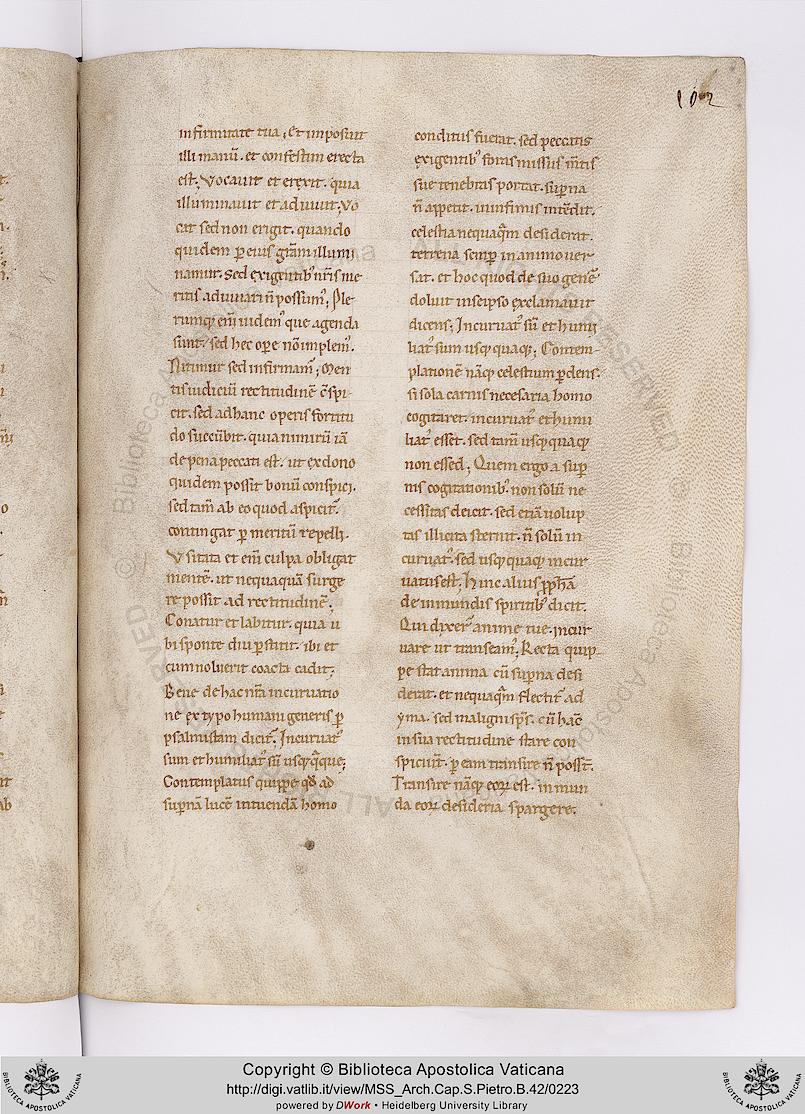 102
infirmitate tua; Et imposuit
illi manū. et confestim erecta
est; Vocauit et erexit. quia
illuminauit et adiuuit; Vo
cat sed non erigit. quando
quidem p eius grām illumi
namur. Sed exigentib' nr̄is me
ritis adiuuari n̄ possum'; Ple
rumq; eni uidem' que agenda
sunt. sed hec ope nō implem'.
Nitimur sed infirmam'; Men
tis iudiciū rectitudinē c̄spi
cit. sed ad hanc operis fortitu
do succūbit. quia nimirū iā
de pena peccati est. ut ex dono
quidem possit bonū conspici.
sed tam̄ ab eo quod aspicit'.
contingat p meritū repelli.
Vsitata et eni culpa obligat
mentē. ut nequaquā surge
re possit ad rectitudinē;
Conatur et labitur. quia u
bi sponte diu pstitit. ibi et
cum noluerit coacta cadit;
Bene de hac nr̄a incuruatio
ne ex typo humani generis p
psalmistam dicit'. Incuruat'
sum et humiliat' sū usq; q̄que;
Contemplatus quippe qd̄ ad
supnā lucē intuendā homo
conditus fuerat. sed peccatis
exigentib' foras missus m̄tis
sue tenebras portat. supna
n̄ appetit. in infimis intēdit.
celestia nequaq̄m desiderat.
terrena semp in animo uer
sat. et hoc quod de suo genē
doluit in se ipso exclamauit
dicens; Incuruat' sū et humi
liat' sum usq; quaq;; Contem-
platione nāq; celestium pdens.
si sola carnis necesaria homo
cogitaret. incuruat' et humi
liat' esset. sed tam̄ usq; quaq;
non essed; Quem ergo a sup
nis cogitationib' non solū ne
cessitas deicit. sed etiā uolup
tas illicita sternit. n̄ solū in
curuat'. sed usq; quaq; incur
uatus est; Hinc alius ppħā
de inmundis spiritib' dicit.
Qui dixer̄ anime tue. incur
uare ut transeam'; Recta quip
pe stat anima cū supna desi
derat. et nequaq̄m flectit' ad
yma. sed maligni sps̄. cū hāc
in sua rectitudine stare con
spiciūt. p eam transire n̄ poss̄t.
Transire nāq; eoꝝ est. inmun
da eoꝝ desideria spargere.
Copyright © Biblioteca Apostolica Vaticana
http://digi.vatlib.it/view/MSS_Arch.Cap.S.Pietro.B.42/0223
powered by DWork • Heidelberg University Library